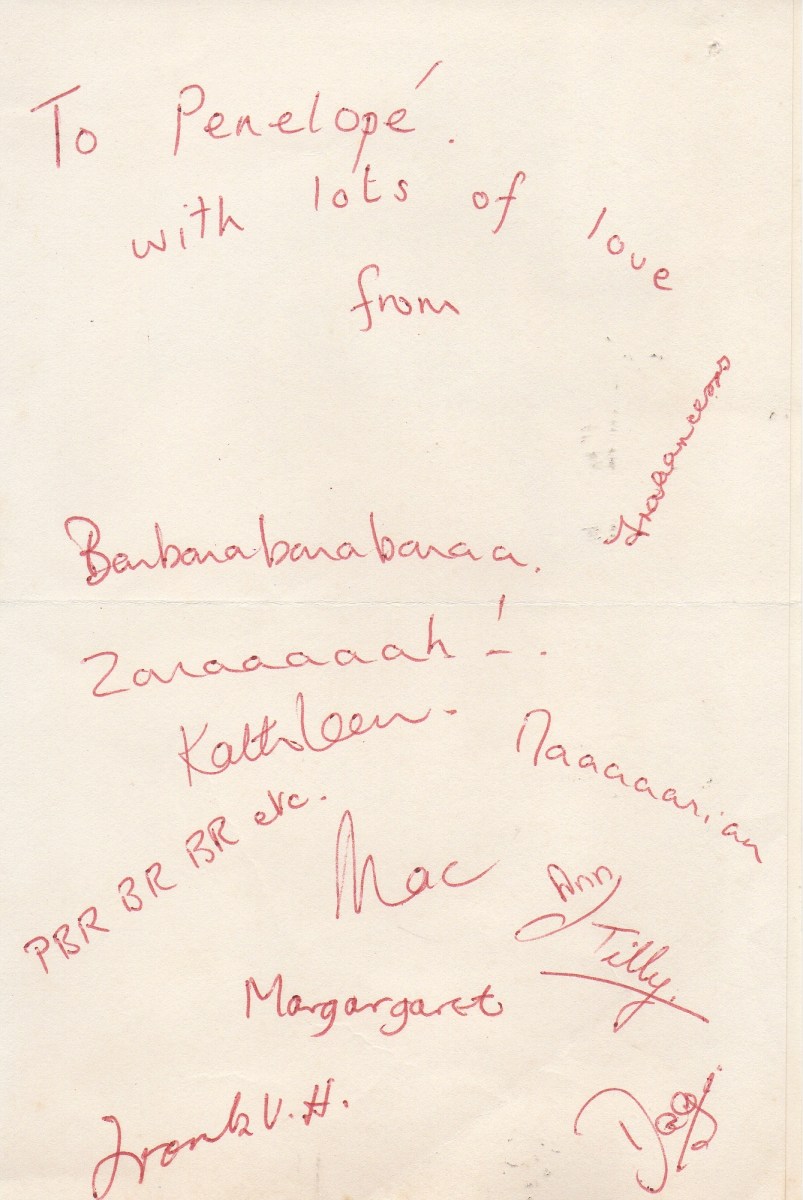 To Penelopé.
with lots of love
from
Fraaanceees
Barbarabarabaraa.
Zaraaaaaah!.
Kathleen.
Maaaaaarian
PBR BR BR etc.
Mac
Ann
Tilly.
Margargaret
Frank V.H.